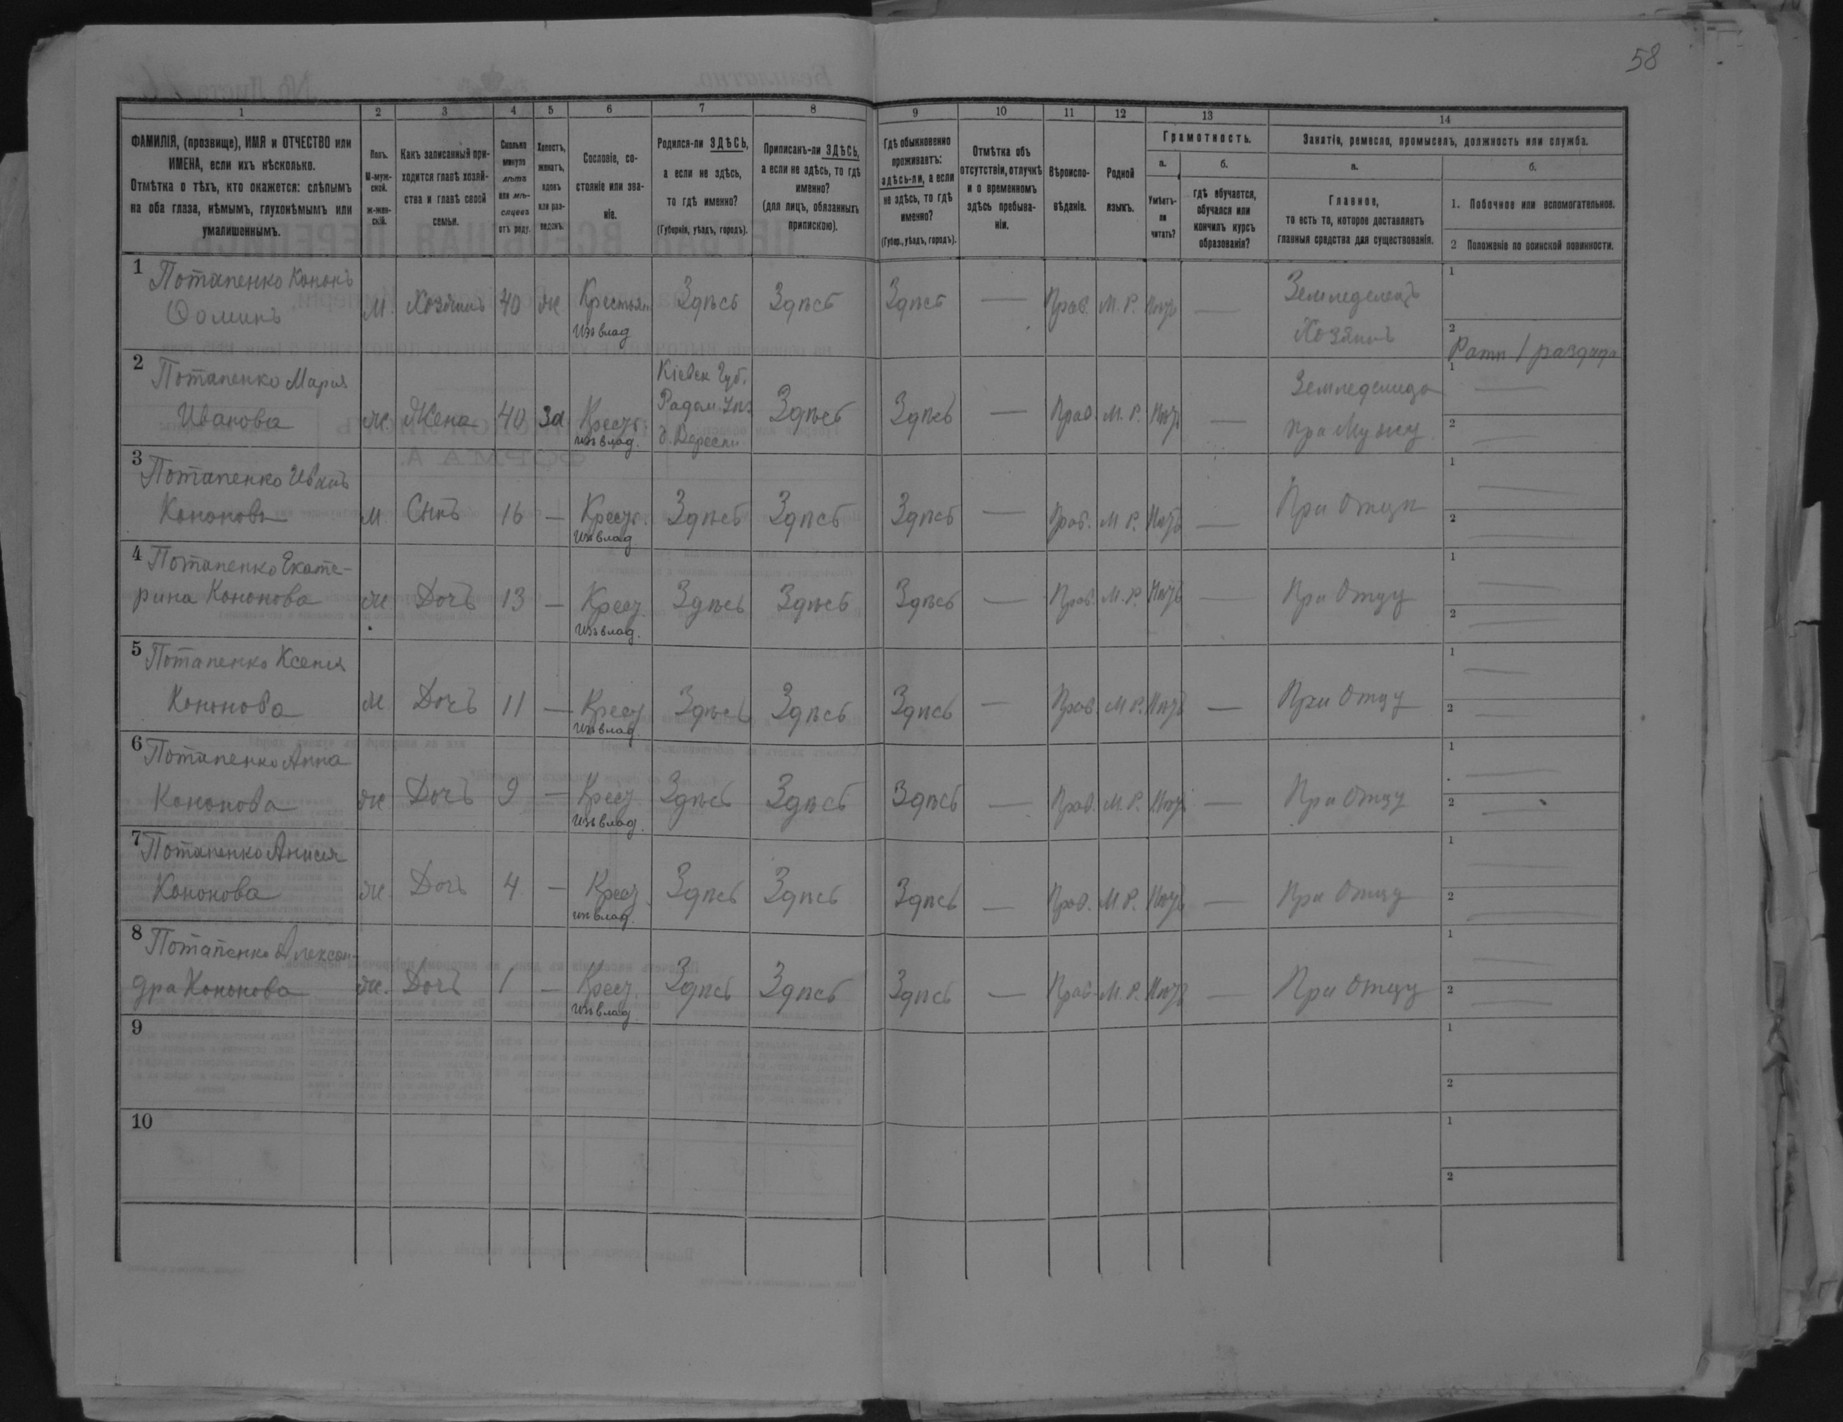 58
1 2 3 4 5 6 7 8 9 10 11 12 13 14
ФАМИЛІЯ, (прозвище), ИМЯ и ОТЧЕСТВО или
ИМЕНА, если ихъ нѣсколько.
Отмѣтка о тѣхъ, кто окажется: слѣпымъ
на оба глаза, нѣмымъ, глухонѣмымъ или
умалишеннымъ.
Полъ.
М-муж-
ской.
Ж-жен-
скій.
Какъ записанный при-
ходится главѣ хозяй-
ства и главѣ своей
семьи.
Сколько
минуло
лѣтъ
или мѣ-
сяцевъ
отъ роду.
Холостъ,
женатъ,
вдовъ
или раз-
веденъ.
Сословіе, со-
стояніе или зва-
ніе.
Родился-ли ЗДѢСЬ,
а если не здѣсь,
то гдѣ именно?
(Губернія, уѣздъ, городъ).
Приписанъ-ли ЗДѢСЬ,
а если не здѣсь, то гдѣ
именно?
(для лицъ, обязанныхъ
припискою).
Гдѣ обыкновенно
проживаетъ:
здѣсь-ли, а если
не здѣсь, то гдѣ
именно?
(Губер., уѣздъ, городъ).
Отмѣтка объ
отсутствіи, отлучкѣ
и о временномъ
здѣсь пребыва-
ніи.
Вѣроиспо-
вѣданіе.
Родной
языкъ.
Грамотность.
а.
Умѣетъ-
ли
читать?
б.
гдѣ обучается,
обучался или
кончилъ курсъ
образованія?
Занятія, ремесло, промыселъ, должность или служба.
а.
Главное,
то есть то, которое доставляетъ
главныя средства для существованія.
б.
1. Побочное или вспомогательное.
2 Положеніе по воинской повинности.
1 Потапенко Кононъ
Фоминъ М. Хозяинъ 40 ж Крестьян. Здѣсь Здѣсь Здѣсь — Прав. М. Р. Нѣтъ — Земледелецъ
изъ влад. Хозяинъ
1
2 Ратн 1 разряда
2 Потапенко Мария
Иванова ж Жена 40 За Крест. Кіевск Губ. Здѣсь Здѣсь — Прав. М. Р. Нѣтъ — Земледелица
изъ влад. Радом. при Мужу
1 —
2 —
3 Потапенко Иванъ
Кононовъ М. Сынъ 16 — Крест. Здѣсь Здѣсь Здѣсь — Прав. М. Р. Нѣтъ — При Отцѣ
изъ влад
1 —
2 —
4 Потапенко Екате-
рина Кононова ж Дочь 13 — Крест. Здѣсь Здѣсь Здѣсь — Прав. М. Р. Нѣтъ — При Отцу
изъ влад.
1 —
2 —
5 Потапенко Ксения
Кононова ж. Дочь 11 — Крест Здѣсь Здѣсь Здѣсь — Прав. М Р. Нѣтъ — При Отцу
изъ влад.
1 —
2 —
6 Потапенко Анна
Кононова ж Дочь 9 — Крест. Здѣсь Здѣсь Здѣсь — Прав. М. Р. Нѣтъ — При Отцу
изъ влад.
1 —
2 —
7 Потапенко Анисия
Кононова ж. Дочь 4 — Крест. Здѣсь Здѣсь Здѣсь — Прав. М Р. Нѣтъ — При Отцу
изъ влад.
1 —
2 —
8 Потапенко Алексан-
дра Кононова ж. Дочь 1 — Крест. Здѣсь Здѣсь Здѣсь — Прав. М. Р. Нѣтъ — При Отцу
изъ влад.
1 —
2 —
9
1
2
10
1
2